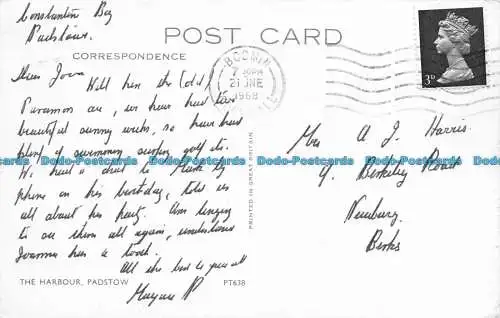 Constantine Bay
Padstow.
POST CARD
CORRESPONDENCE
BODMIN
7 PM
21 JNE
1968
3D
Dear Joan
Will has the (old)
are, we have had two
beautiful sunny weeks, so have had
plenty of swimming surfing golf etc.
We had a chat to Mark by
phone on his birthday, told us
all about his party. Am longing
to see them all again, understand
Joanna has a tooth.
All the best to you all
PRINTED IN GREAT BRITAIN
Mrs A J. Harris.
9. Berkeley Road
Newbury.
Berks
THE HARBOUR, PADSTOW
PT638
Dodo-Postcards Dodo-Postcards Dodo-Postcards Dodo-Postcards